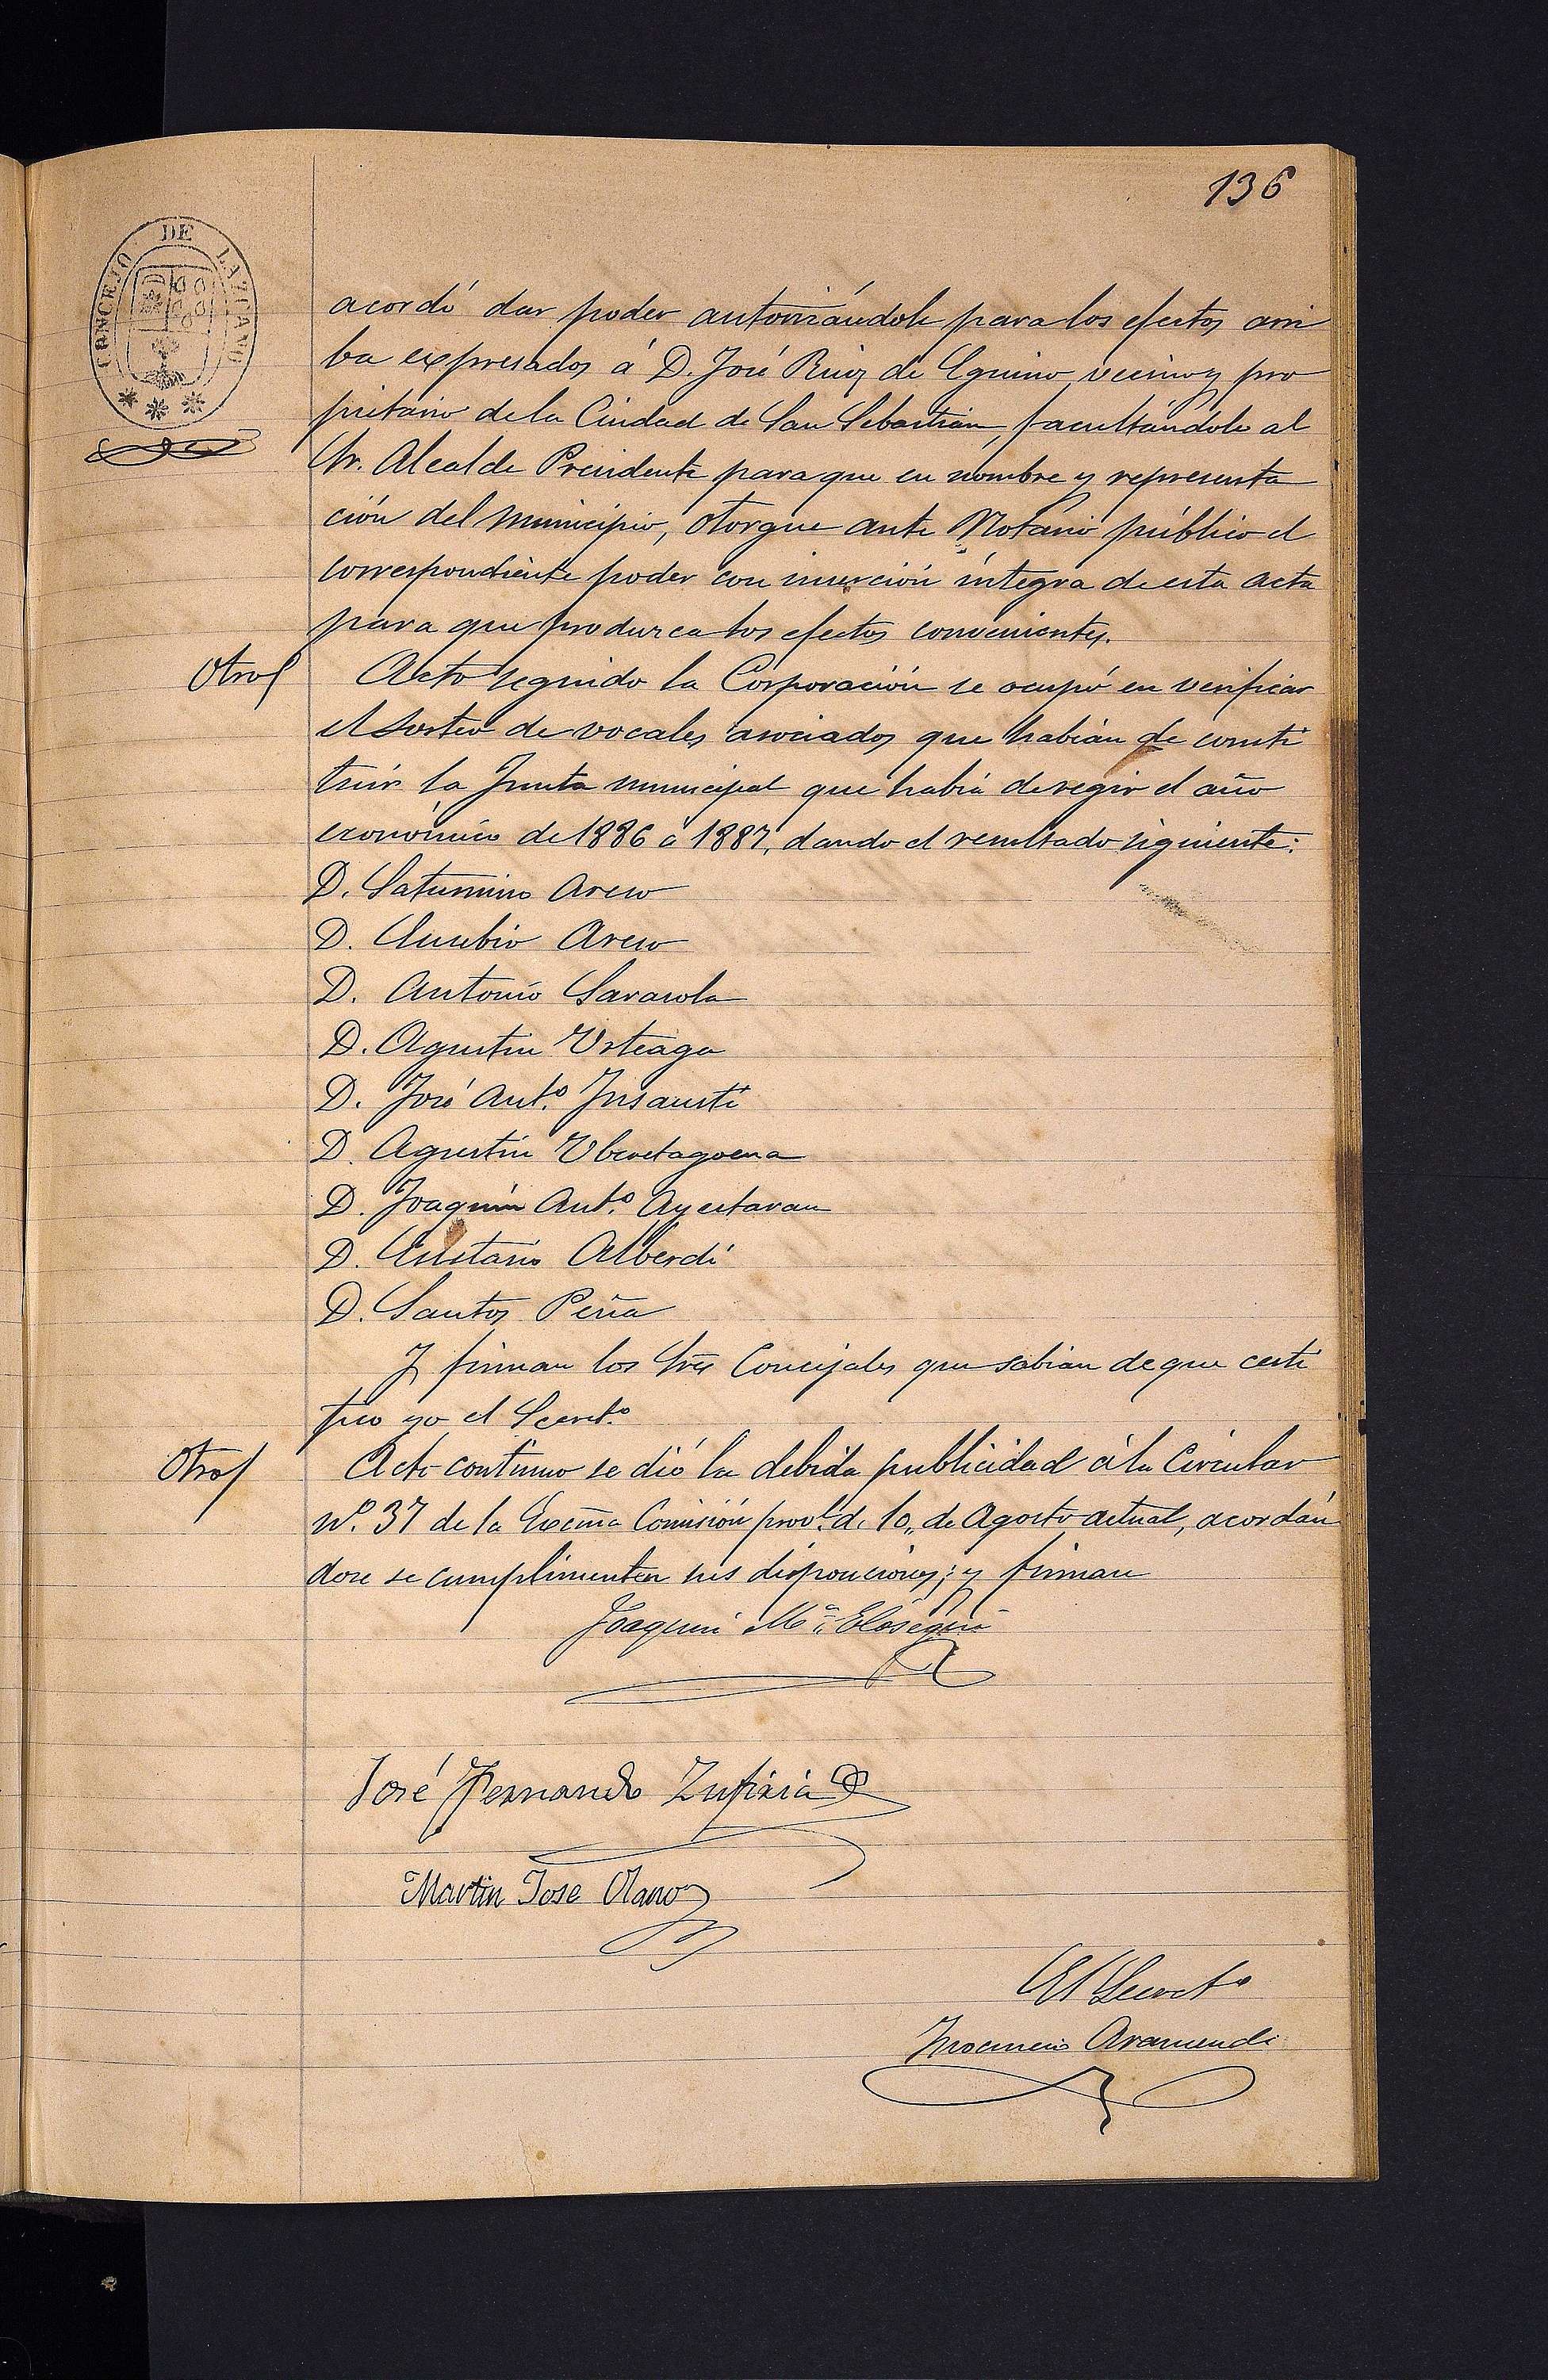 136
CONCEJO DE LAZCANO
acordó dar poder autorizándole para los efectos arri
ba expresados á D. José Ruiz de Eguino, vecino y pro
pietario de la Ciudad de San Sebastián, facultándole al
Sr. Alcalde Presidente para que en nombre y representa
ción del municipio, otorgue ante Notario público el
correspondiente poder con inserción íntegra de esta acta
para que produzca los efectos convenientes.
Otro Acto seguido la Corporación se ocupó en verificar
el sorteo de vocales asociados que habian de consti
tuir la Junta municipal que habia de regir el año
económico de 1886 á 1887, dando el resultado siguiente:
D. Saturnino Areso
D. Eusebio Areso
D. Antonio Sarasola
D. Agustin Urteaga
D. José Ant.º Insausti
D. Agustin Uberetagoena
D. Joaquín Ant.º Ayestaran
D. Eustasio Alberdi
D. Santos Peña
Y firman los Sres Concejales que sabian de que certi
fico yo el Secret.º
Otro Acto continuo se dió la debida publicidad á la Circular
nº. 37 de la Excma Comisión prov.l de 10,, de Agosto actual, acordán
dose se cumplimenten sus disposiciones; y firman
Joaquin M.ª Elosegui
José Fernando Zufiria
Martin Jose Olano
El Secret.º
Inocencio Aramendi